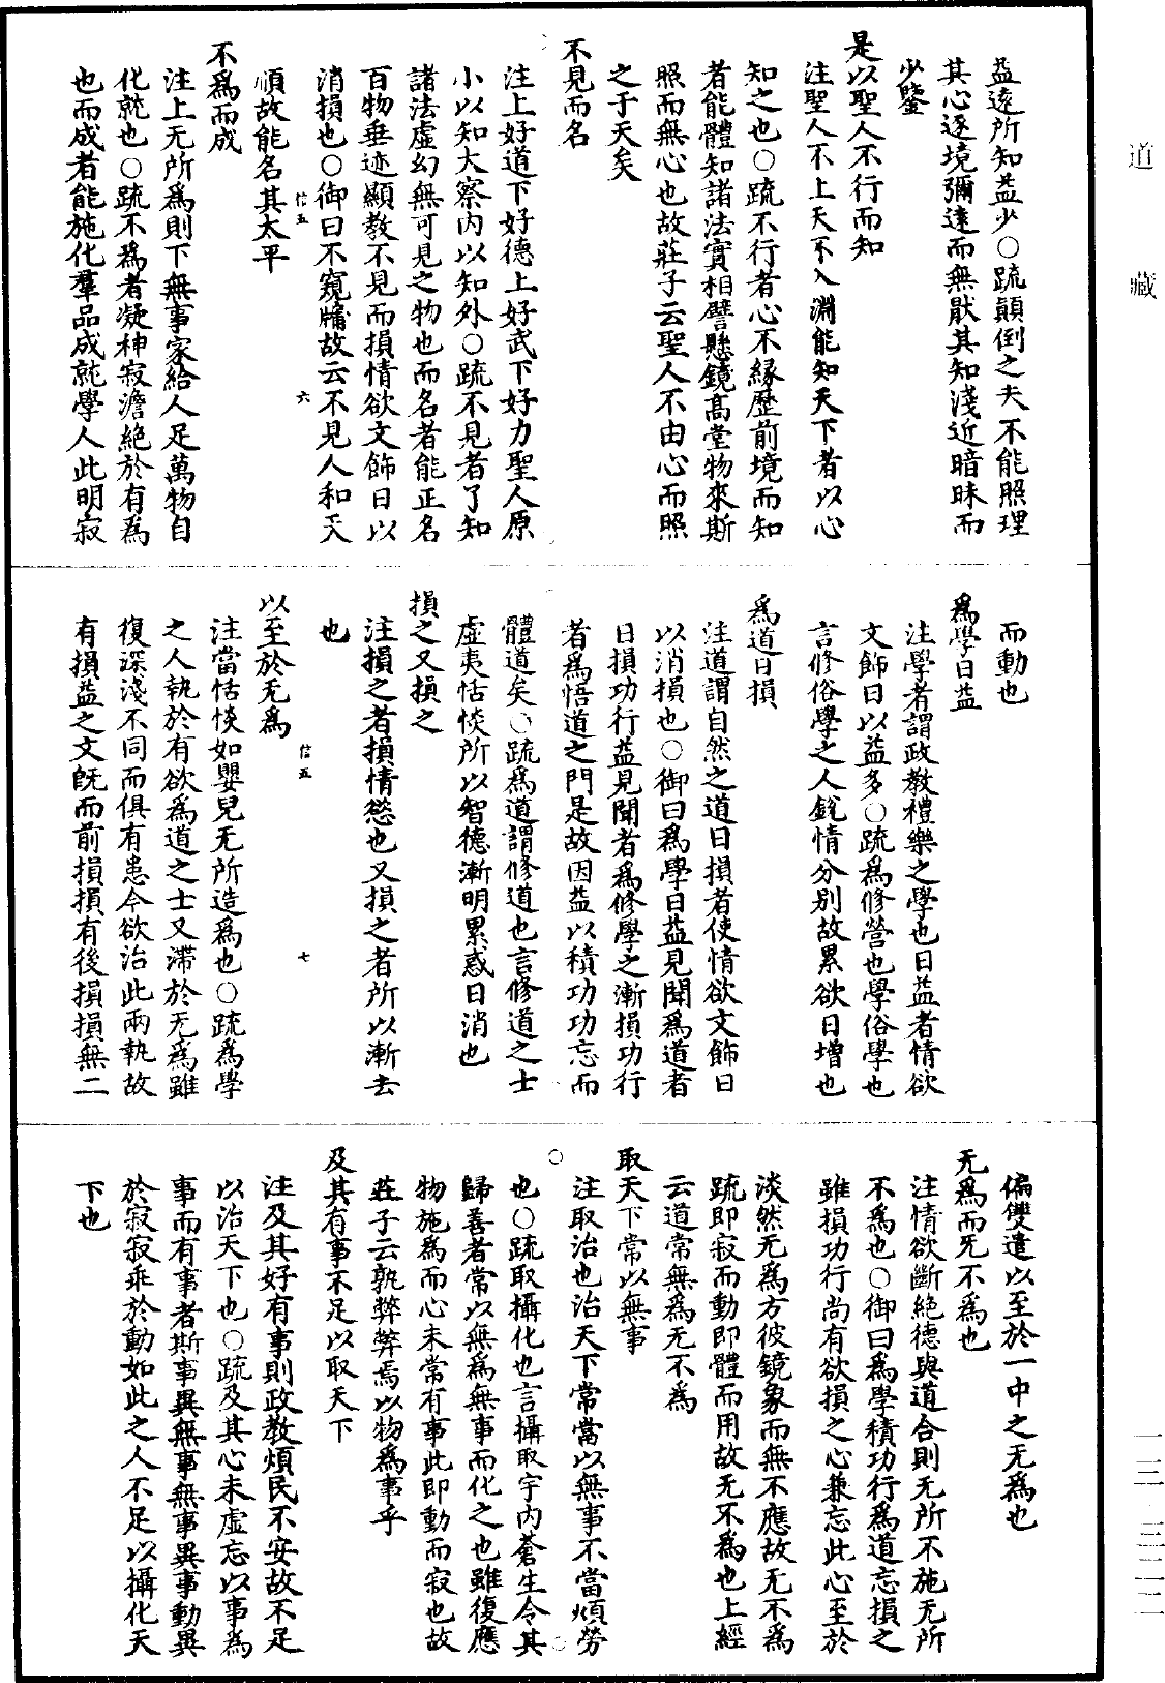 道藏
益遠所知益少○疏顛倒之夫不能照理
其心逐境彌遠而無猒其知淺近暗昧而
少鑒
是以聖人不行而知
注聖人不上天不入淵能知天下者以心
知之也○疏不行者心不緣歷前境而知
者能體知諸法實相譬懸鏡高堂物來斯
照而無心也故莊子云聖人不由心而照
之于天矣
不見而名
注上好道下好德上好武下好力聖人原
小以知大察內以知外○疏不見者了知
諸法虛幻無可見之物也而名者能正名
百物垂迹顯教不見而損情欲文飾日以
消損也○御曰不窺牖故云不見人和天
信五 六
順故能名其太平
不為而成
注上无所為則下無事家給人足萬物自
化就也○疏不為者凝神寂澹絕於有為
也而成者能施化羣品成就學人此明寂
而動也
為學日益
注學者謂政教禮樂之學也日益者情欲
文飾日以益多○疏為修營也學俗學也
言修俗學之人銳情分別故累欲日增也
為道日損
注道謂自然之道日損者使情欲文飾日
以消損也○御曰為學日益見聞為道者
日損功行益見聞者為修學之漸損功行
者為悟道之門是故因益以積功功忘而
體道矣○疏為道謂修道也言修道之士
虛夷恬惔所以智德漸明累惑日消也
損之又損之
注損之者損情慾也又損之者所以漸去
也
信五 七
以至於无為
注當恬惔如嬰兒无所造為也○疏為學
之人執於有欲為道之士又滯於无為雖
復深淺不同而俱有患今欲治此兩執故
有損益之文既而前損損有後損損無二
偏雙遣以至於一中之无為也
无為而旡不為也
注情欲斷絕德與道合則无所不施无所
不為也○御曰為學積功行為道忘損之
雖損功行尚有欲損之心兼忘此心至於
淡然无為方彼鏡象而無不應故无不為
疏即寂而動即體而用故无不為也上經
云道常無為无不為
取天下常以無事
注取治也治天下常當以無事不當煩勞
也○疏取攝化也言攝取宇內蒼生令其
歸善者常以無為無事而化之也雖復應
物施為而心未常有事此即動而寂也故
莊子云孰弊弊焉以物為事乎
及其有事不足以取天下
注及其好有事則政教煩民不安故不足
以治天下也○疏及其心未虛忘以事為
事而有事者斯事異無事無事異事動異
於寂寂乖於動如此之人不足以攝化天
下也
一三-三二二